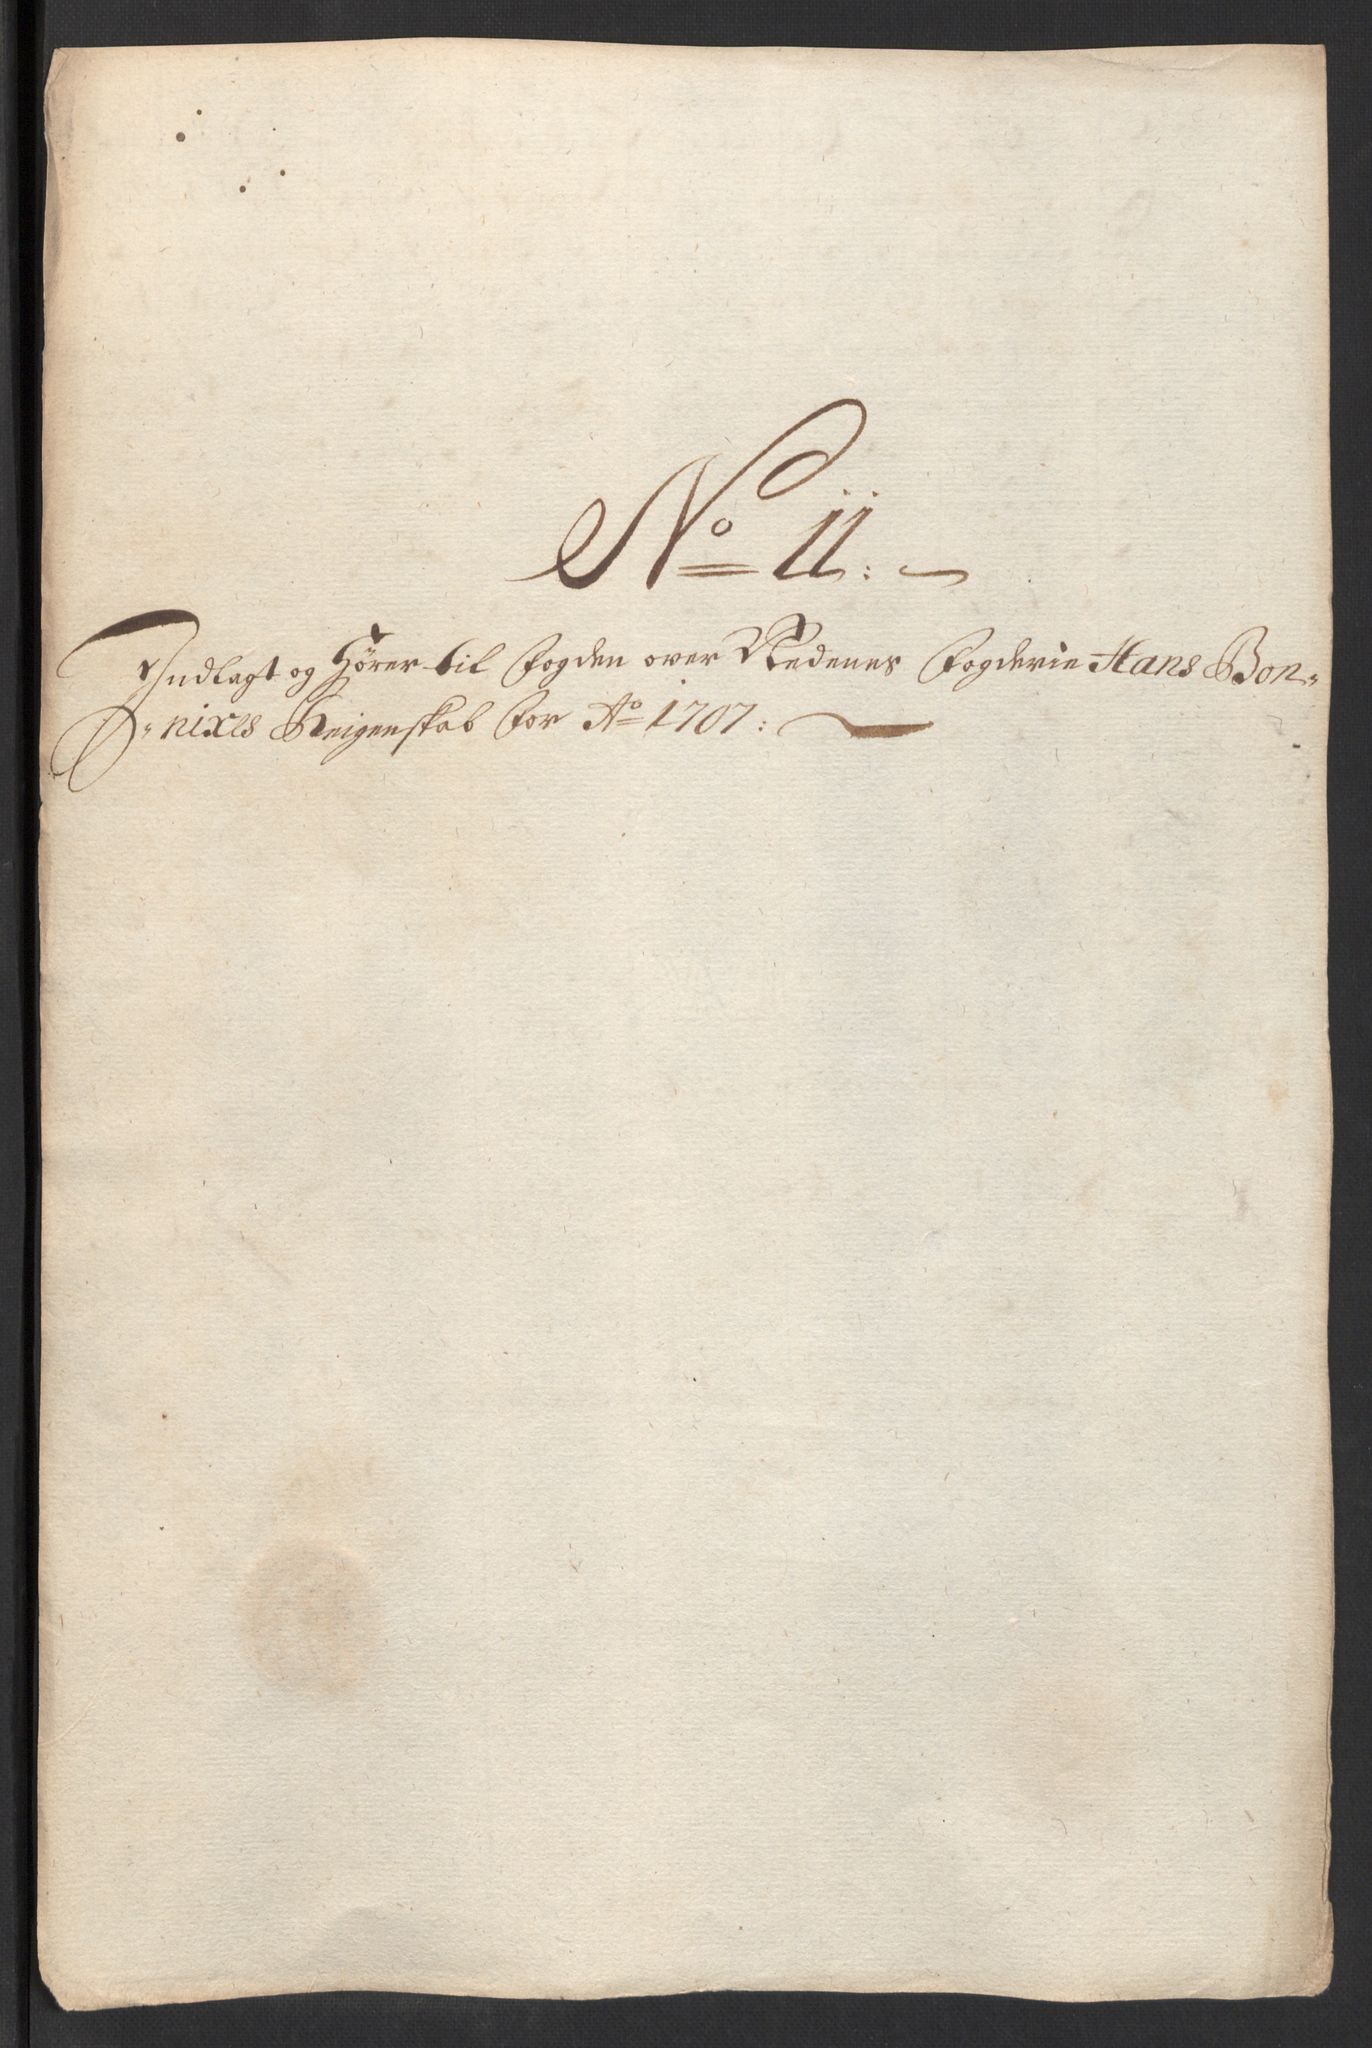 No 11:
Indlagt og Hører til Fogden over Nedenes Fogderie Hans Bon„
„nixes Reigenskab for Ao 1707: